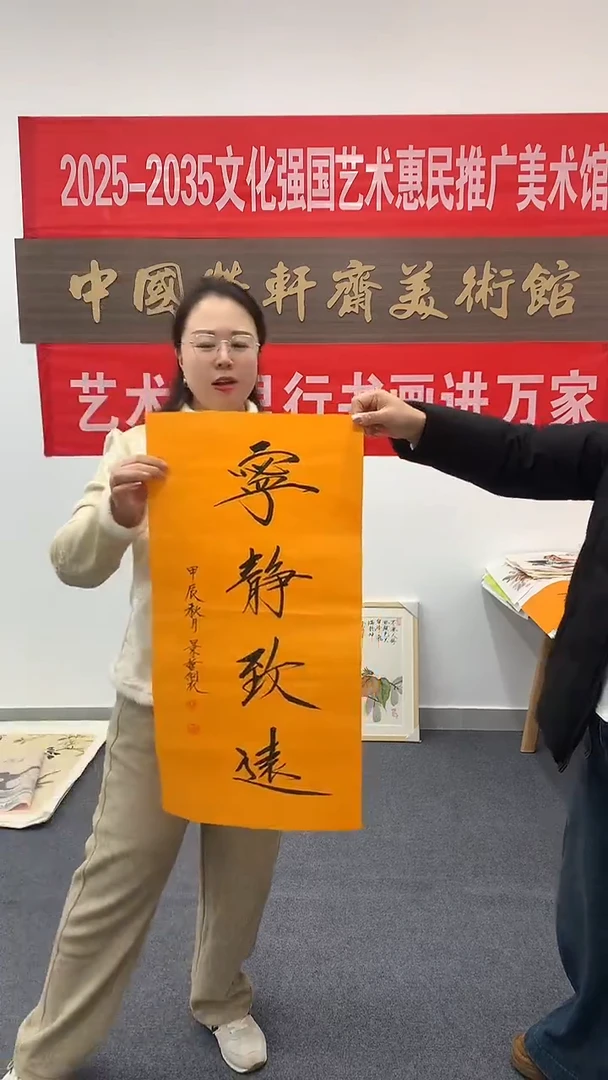 2025-2035文化强国艺术惠民推广美术馆
中國紫軒齋美術館
艺术 里行书画进万家
寧靜致遠
甲辰秋月